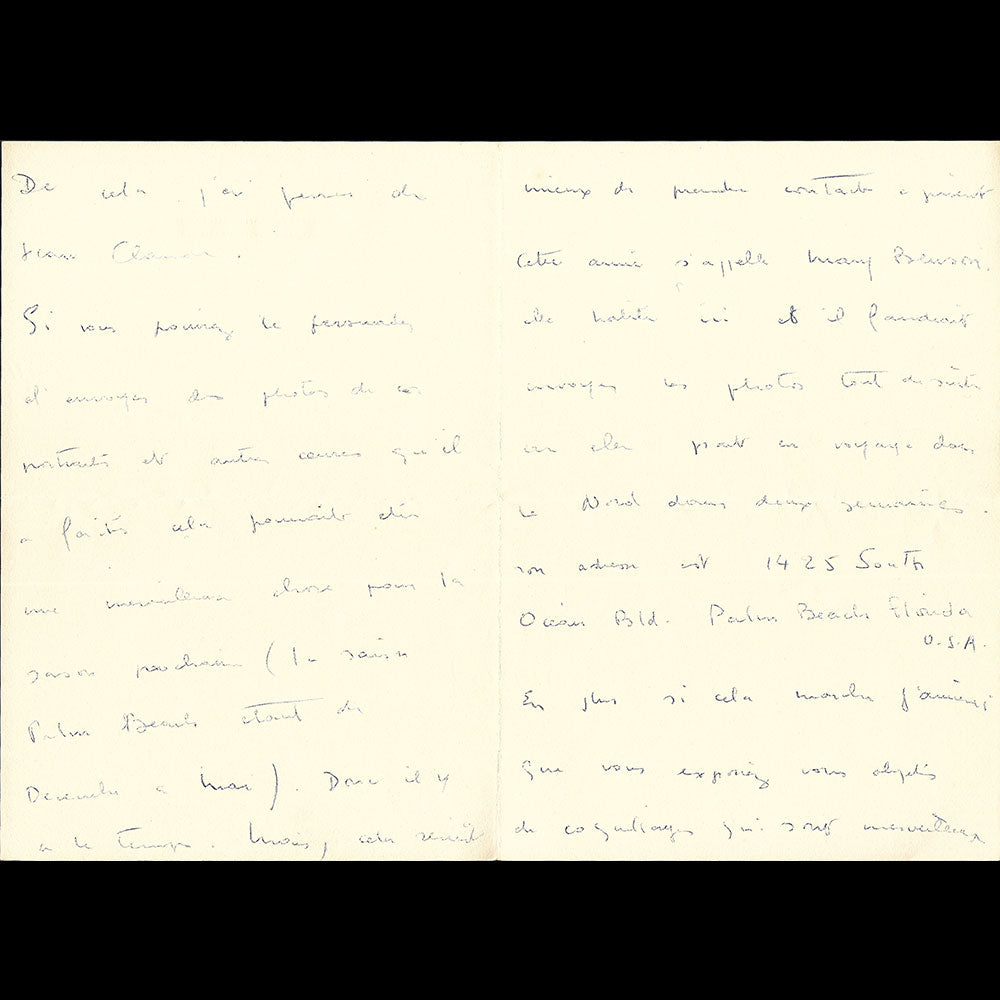 De cela j'ai pensé de
Jean Clement.
Si vous pouviez le persuader
d'envoyer des photos de ces
portraits et autres oeuvres qu'il
a faites cela pourrait être
une merveilleuse chose pour la
saison prochaine (la saison
Palm Beach étant de
Decembre a Mai). Donc il y
a le temps. Mais, cela serait
mieux de prendre contacte a présent
Cette amie s'appelle Mary Benson.
Elle habite ici et il faudrait
envoyer les photos tout de suite
car elle part en voyage dans
le Nord dans deux semaines.
son adresse est 1425 South
Ocean Bld. Palm Beach Florida
U.S.A.
En plus si cela marche j'aimerai
que vous exposiez vos objets
de coquillages qui sont merveilleux